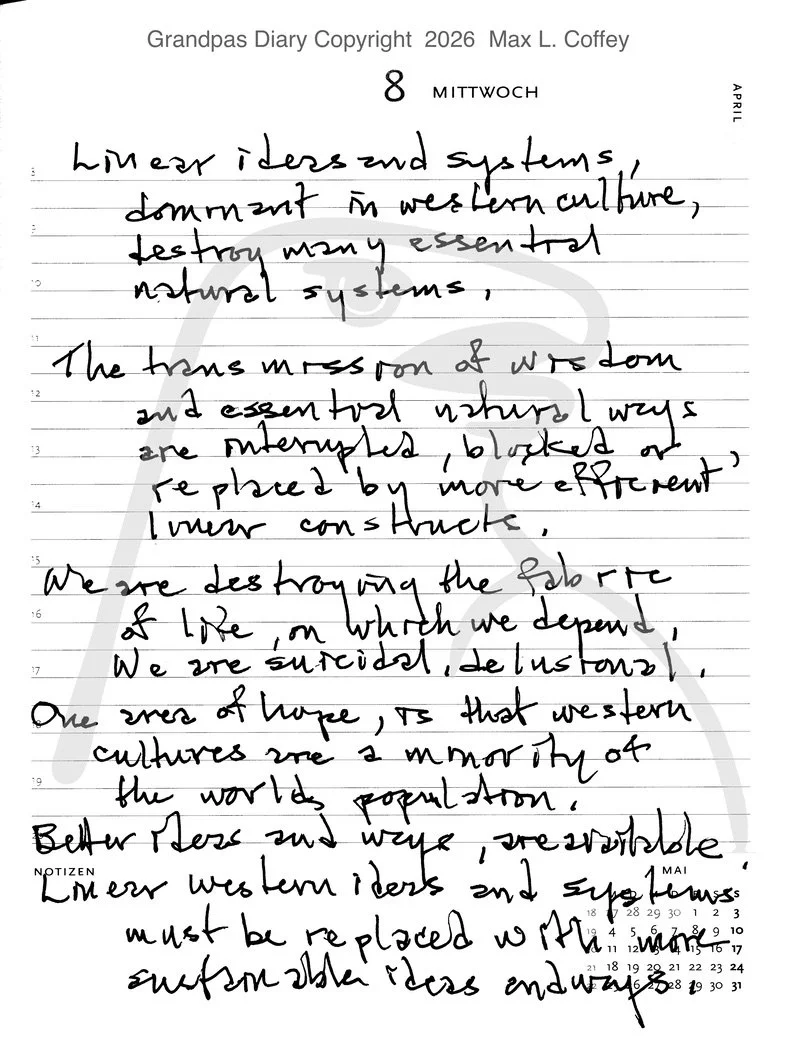 Grandpas Diary Copyright 2026 Max L. Coffey
8 MITTWOCH
APRIL
Linear ideas and systems,
dominant in western culture,
destroy many essential
natural systems,
The transmission of wisdom
and essential natural ways
are interrupted, blocked or
replaced by more efficient,
linear constructs.
We are destroying the fabric
of life, on which we depend,
We are suicidal, delusional.
One area of hope, is that western
cultures are a minority of
the worlds population.
Better ideas and ways, are available.
NOTIZEN
MAI
Linear western ideas and systems
must be replaced with more
sustainable ideas and ways.
8
9
10
11
12
13
14
15
16
17
19
18 27 28 29 30 1 2 3
19 4 5 6 7 8 9 10
11 12 13 14 15 16 17
21 18 19 20 21 22 23 24
22 25 26 27 28 29 30 31